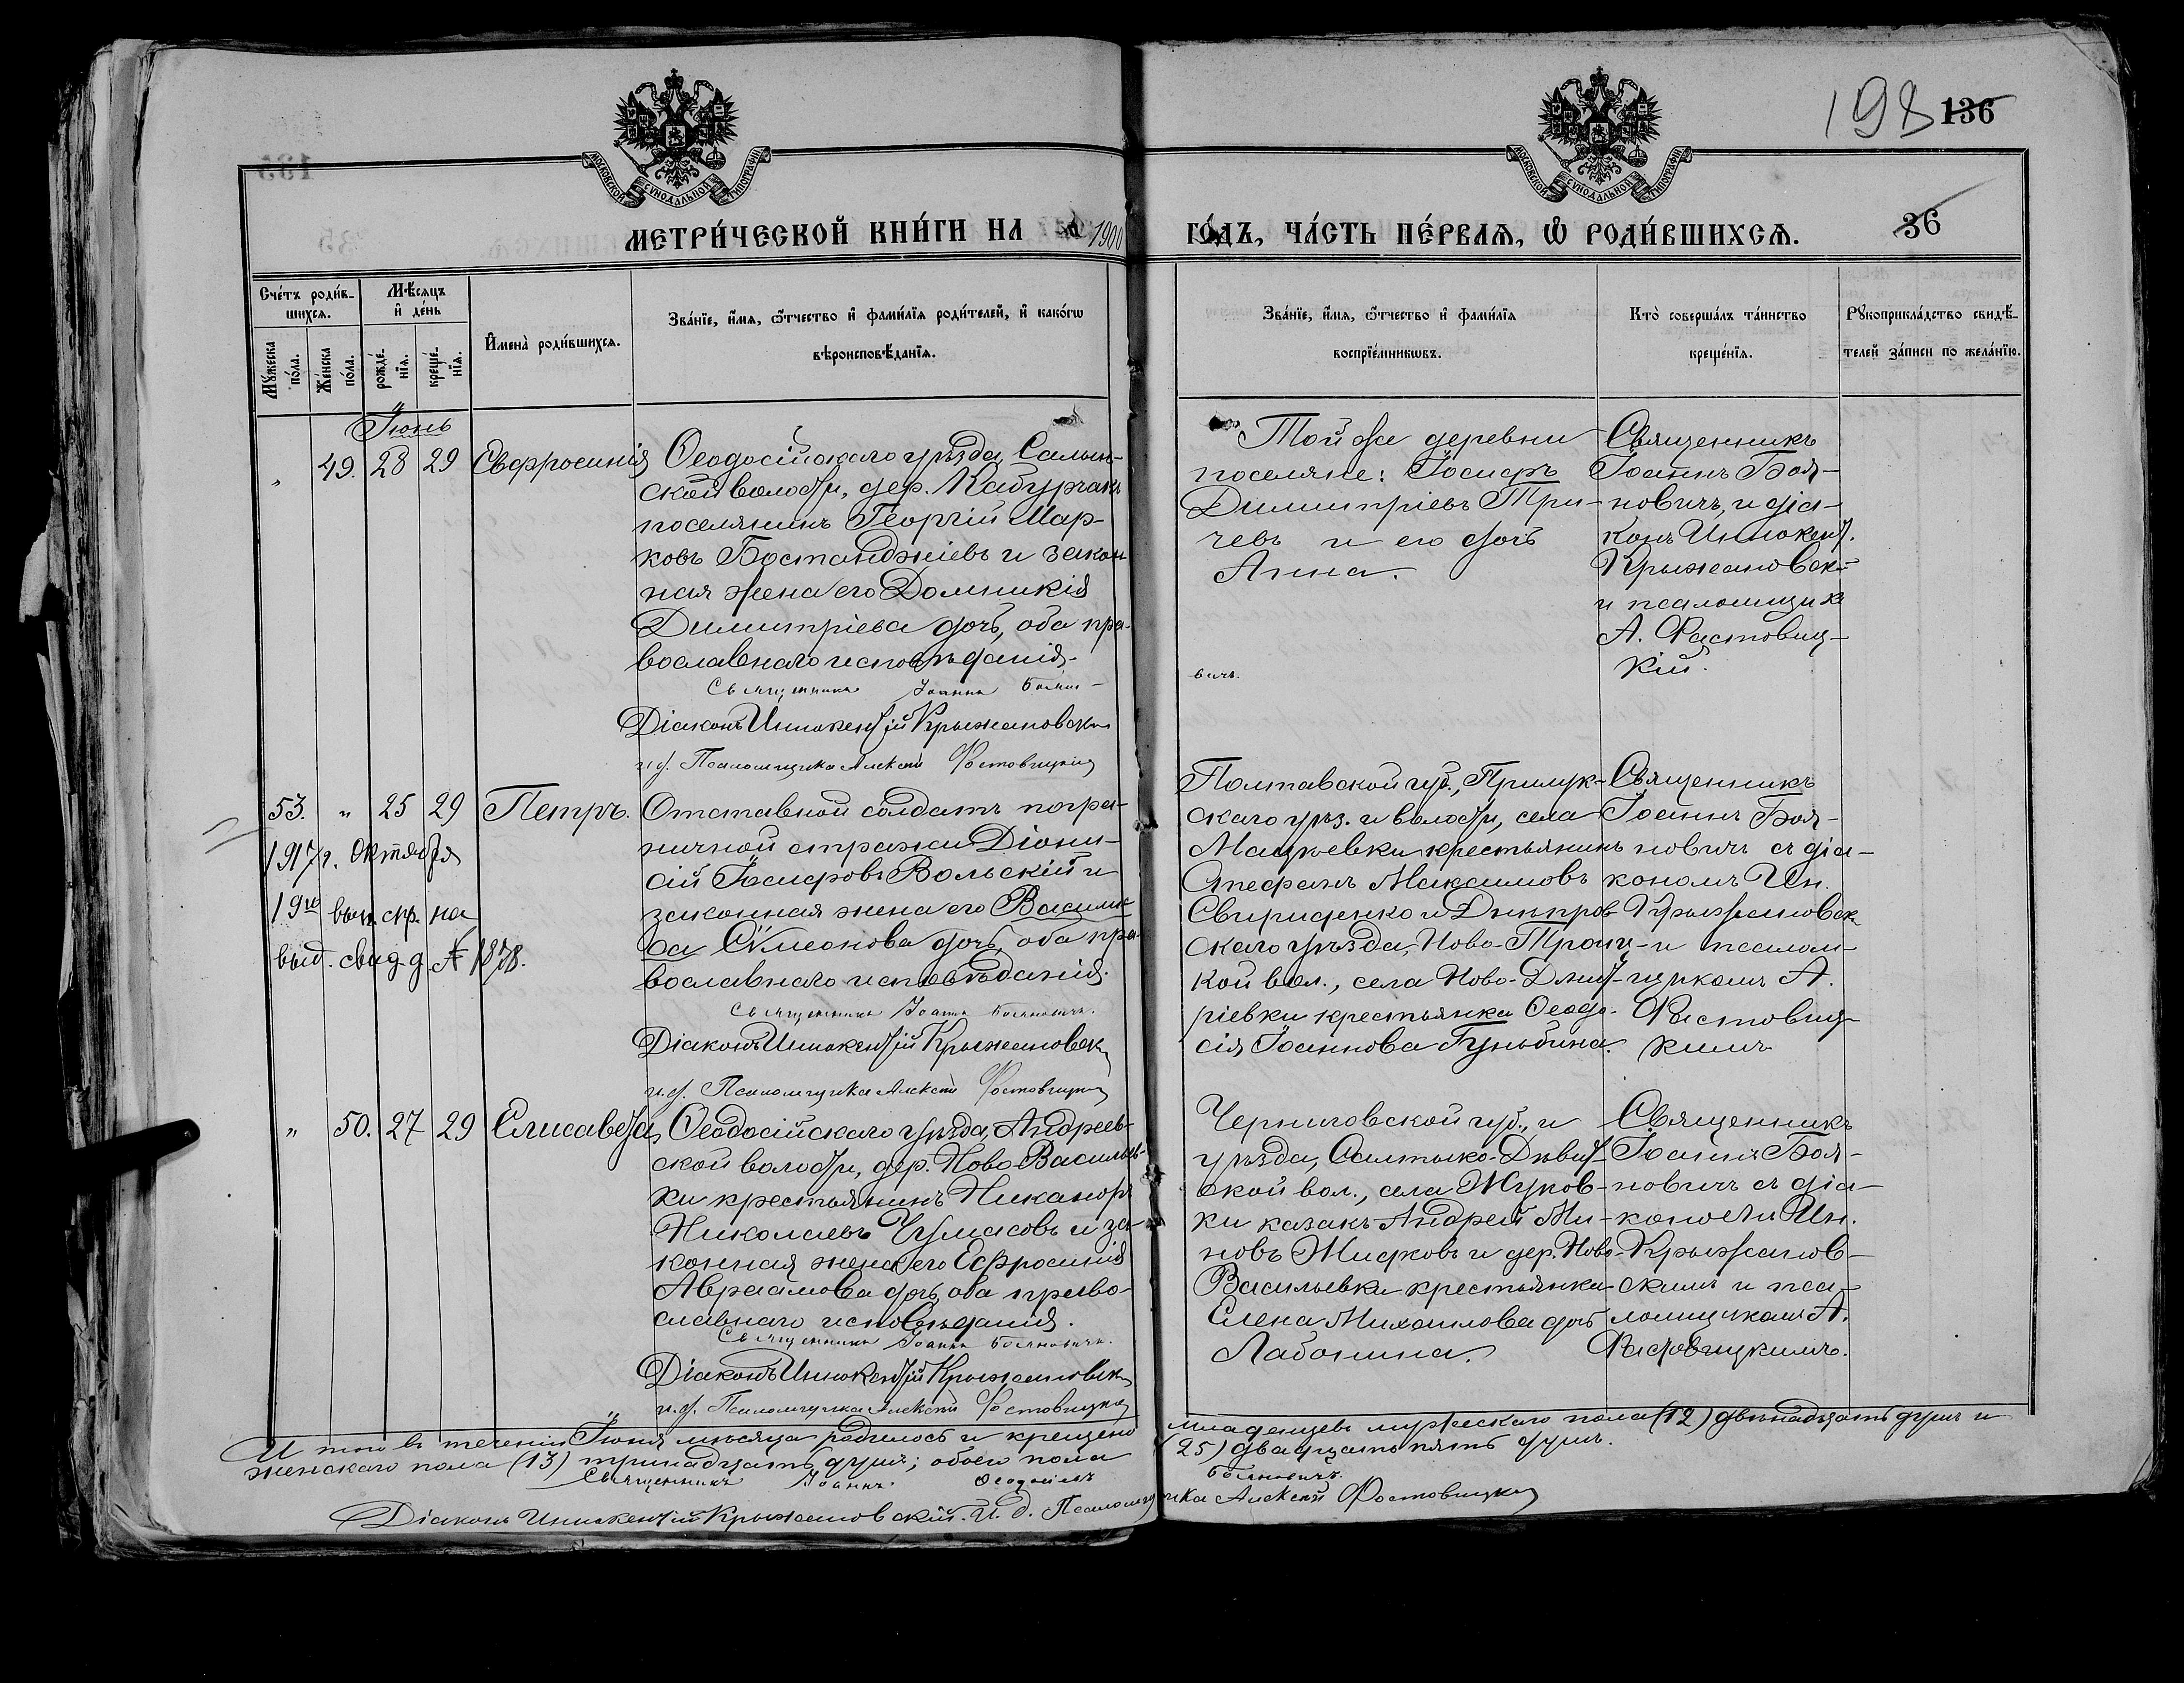 198 136
36
МОСКОВСКОЙ СѴНОДАЛЬНОЙ ТИПОГРАФІИ
МОСКОВСКОЙ СѴНОДАЛЬНОЙ ТИПОГРАФІИ
МЕТРИ́ЧЕСКОЙ КНИ́ГИ НА 1900 ГО́ДЪ, ЧА́СТЬ ПЕ́РВАѦ, Ѡ҆ РОДИ́ВШИХСѦ.
Сче́тъ роди́в-
шихсѧ.
Мꙋ́жеска по́ла.
Же́нска по́ла.
Мѣ́сѧцъ и҆ де́нь
рожде́-нїѧ.
креще́-нїѧ.
И҆мена̀ роди́вшихсѧ.
Зва́нїе, и҆́мѧ, ѻ҆́тчество и҆ фами́лїѧ роди́телей, и҆ како́гѡ
вѣроисповѣ́данїѧ.
Зва́нїе, и҆́мѧ, ѻ҆́тчество и҆ фами́лїѧ
воспрїе́мникѡвъ.
Кто̀ соверша́лъ та́инство
креще́нїѧ.
Рꙋкоприкла́дство свидѣ́-
телей за́писи по жела́нїю.
Іюнь
" 49. 28 29 Евфросинія
Ѳеодосійскаго уѣзда, Салын-
ской волости, дер. Кабурчакъ
поселянинъ Георгій Мар-
ковъ Бостанджіевъ и закон-
ная жена его Домникія
Димитріева дочь, оба пра-
вославнаго исповѣданія.
Священникъ Іоаннъ Бояно-
вичъ.
Діаконъ Иннокентій Крыжановскій
и.д. Псаломщика Алексѣй Фастовицкій
Той же деревни
поселяне: Іосифъ
Димитріевъ Три-
чевъ и его дочь
Анна.
Священникъ
Іоаннъ Боя-
новичъ, и діа-
конъ Иннокент.
Крыжановск.
и псаломщикъ
А. Фастовиц-
кій.
53. " 25 29 Петръ.
1917 г. Октября
19го выд. спр. на
выд. свид. д. № 1878.
Отставной солдатъ погра-
ничной стражи Діони-
сій Іосифовъ Вольскій и
законная жена его Васили-
са Сѵмеонова дочь, оба пра-
вославнаго исповѣданія.
Священникъ Іоаннъ Бояновичъ.
Діаконъ Иннокентій Крыжановск.
и.д. Псаломщика Алексѣй Фастовицкій
Полтавской губ., Прилук-
скаго уѣз. и волости, села
Мацѣевки крестьянинъ
Стефанъ Максимовъ
Свириденко и Днѣпров-
скаго уѣзда, Ново-Троиц-
кой вол., села Ново-Дмит-
ріевки крестьянка Ѳеодо-
сія Іоаннова Гуньбина.
Священникъ
Іоаннъ Боя-
новичъ съ діа-
кономъ Ин.
Крыжановск.
и псалом-
щикомъ А.
Фастовиц-
кимъ
" 50. 27 29 Елисавета
Ѳеодосійскаго уѣзда, Андреев-
ской волости, дер. Ново-Васильев-
ки крестьянинъ Никаноръ
Николаевъ Чумасовъ и за-
конная жена его Ефросинія
Авраамова дочь, оба право-
славнаго исповѣданія.
Священникъ Іоаннъ Бояновичъ.
Діаконъ Иннокентій Крыжановск.
и.д. Псаломщика Алексѣй Фастовицкій
Черниговской губ., и
уѣзда, Салтыко-Дѣвит-
ской вол., села Жуков-
ки казакъ Андрей Ми-
новъ Жидковъ и дер. Ново-
Васильевки крестьянка
Елена Михаилова дочь
Лабонина.
Священникъ
Іоаннъ Боя-
новичъ съ діа-
кономъ Ин.
Крыжанов-
скимъ и пса-
ломщикомъ А.
Фастовицкимъ.
Итого въ теченіи Іюня мѣсяца родилось и крещено младенцевъ мужескаго пола (12) двѣнадцать душъ и
женскаго пола (13) тринадцать душъ; обоего пола (25) двадцать пять душъ.
Священникъ Іоаннъ Ѳеодосіевъ Бояновичъ.
Діаконъ Иннокентій Крыжановскій. И. д. Псаломщика Алексѣй Фастовицкій